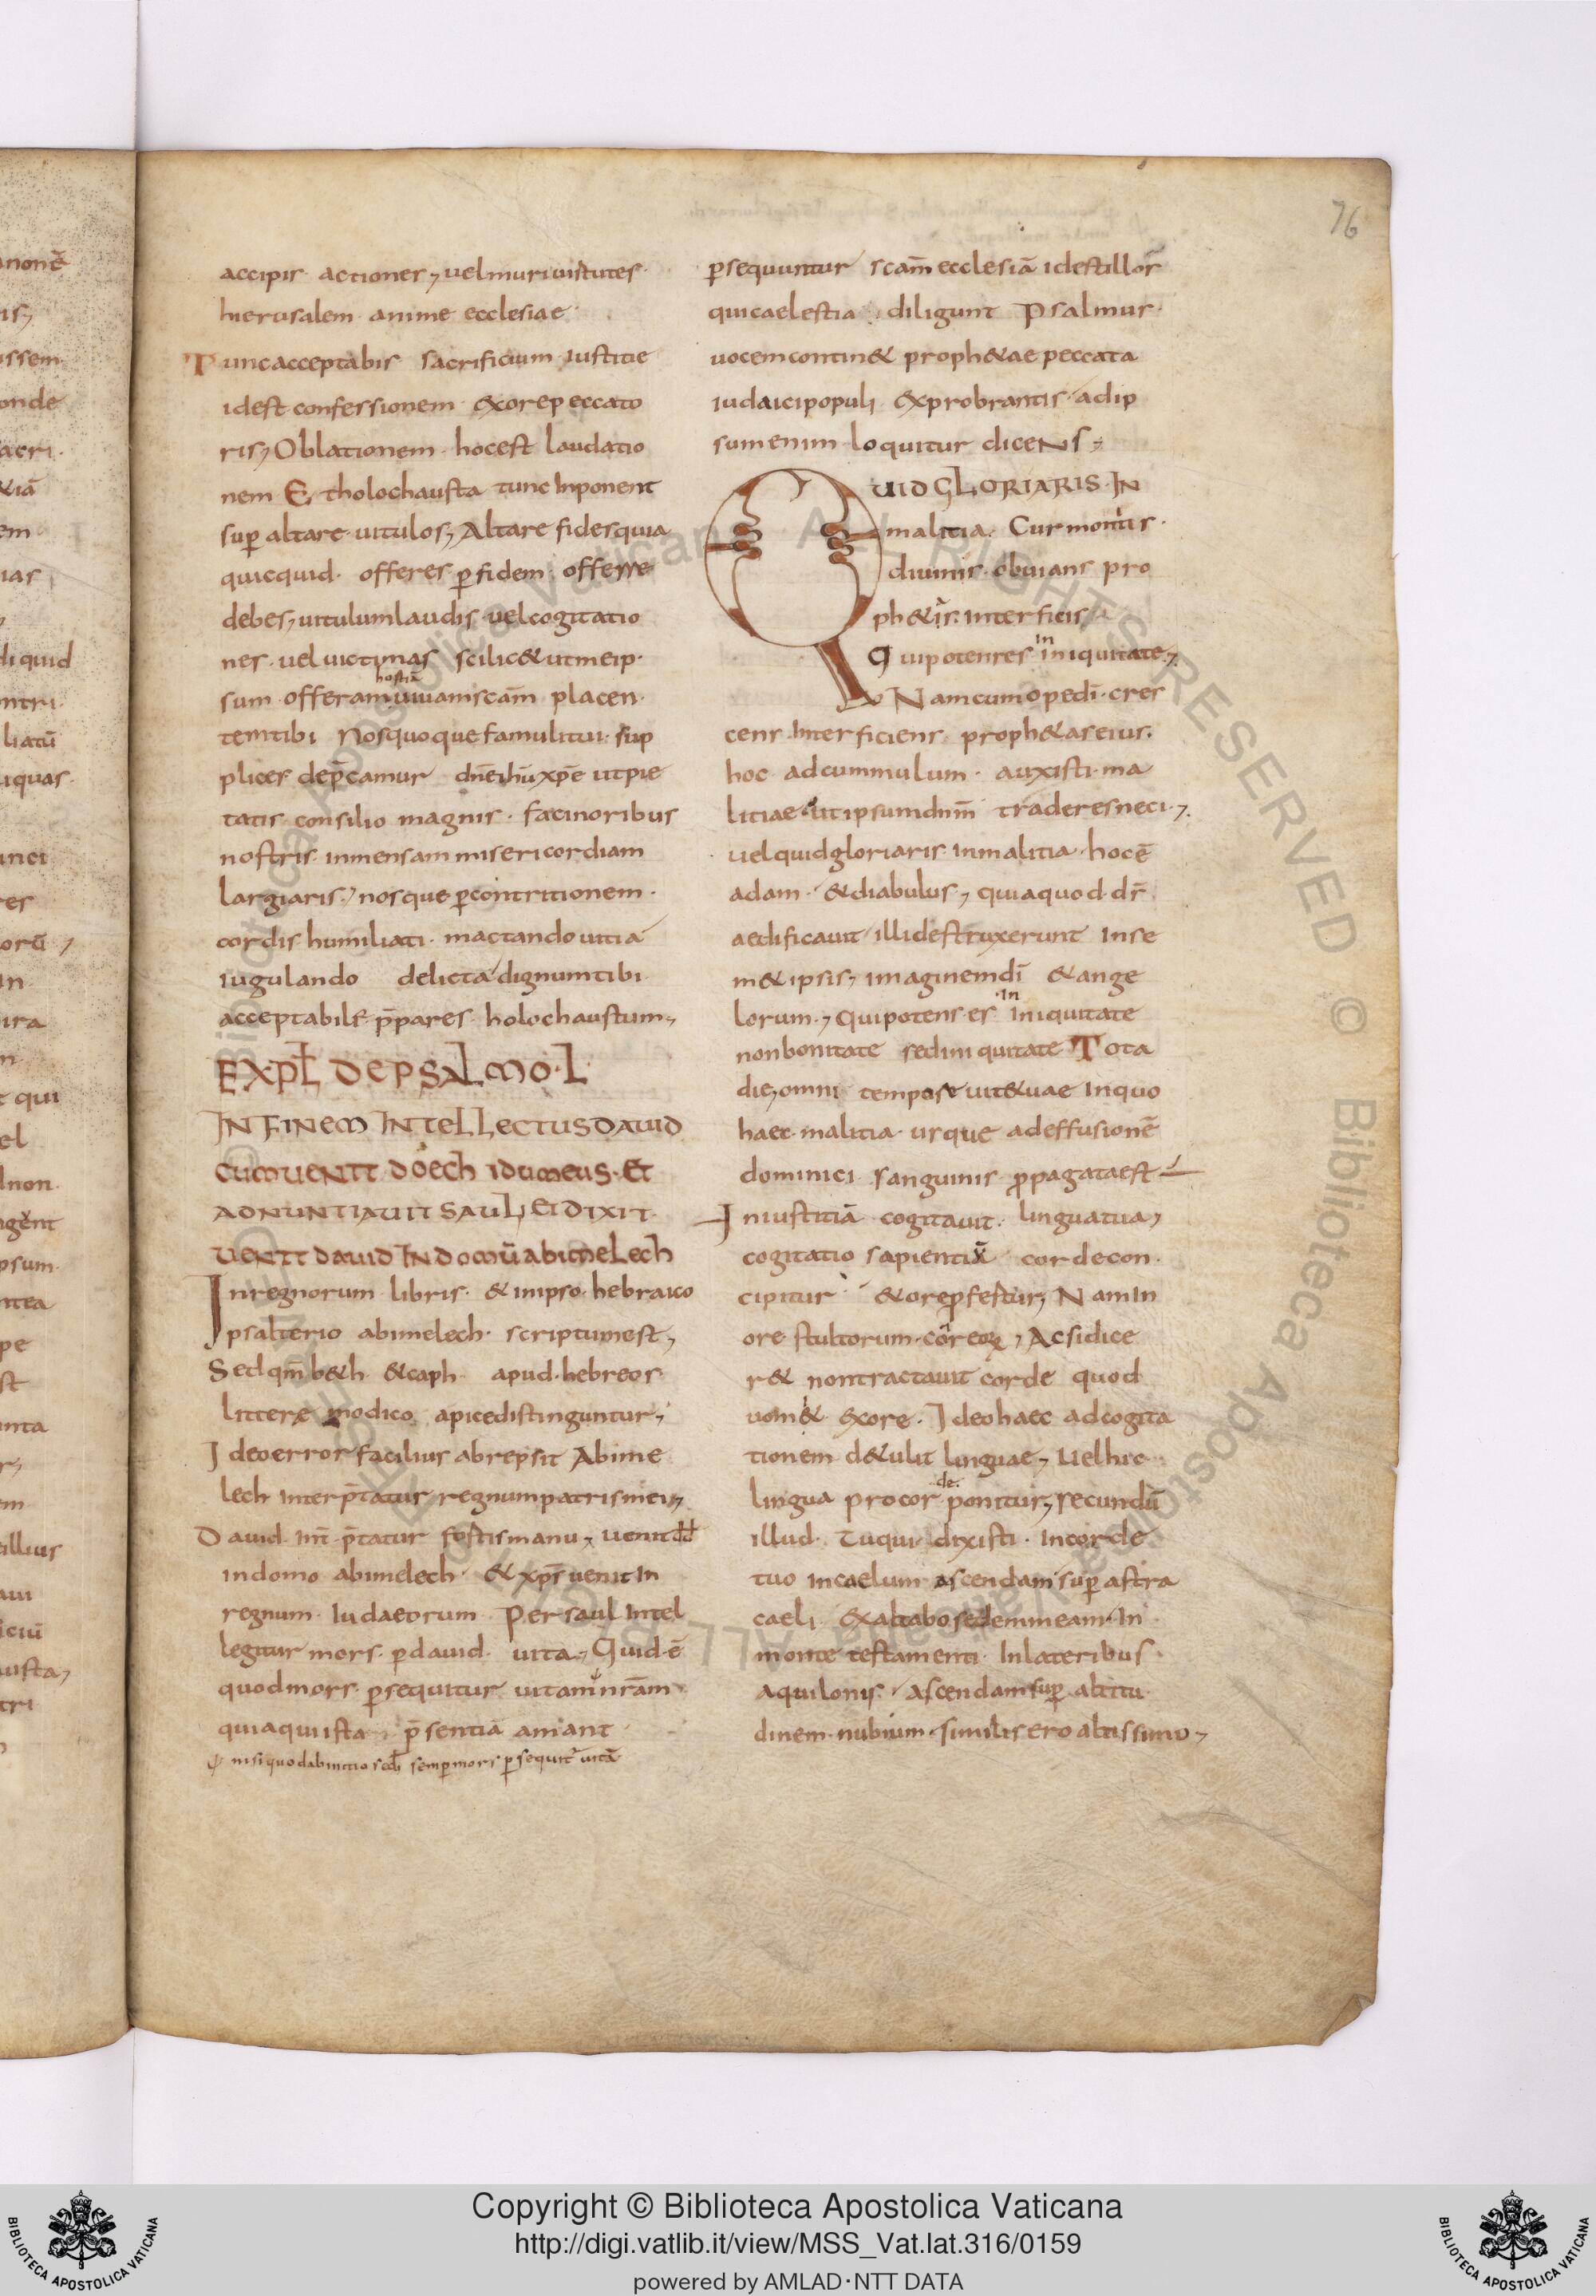 76
accipis actiones, uel muri uirtutes.
hierusalem. anime ecclesiae.
Tunc acceptabis sacrificium iustitie
id est confessionem ex ore peccato
ris, Oblationem. hoc est laudatio
nem Et holochausta tunc Inponent
sup̄ altare uitulos, Altare fides quia
quicquid. offeres p̄ fidem. offerre
debes, uitulum laudis uel cogitatio
nes. uel uictimas scilic& ut meip.
hostiā
sum offeram uiuam scām placen.
tem tibi Nos quoque famuli tui. sup
plices dep̄camur dn̄e ihū xp̄e ut pie
tatis consilio magnis. facinoribus
nostris inmensam misericordiam
largiaris, nosque p̄ contritionem.
cordis humiliati. mactando uitia
iugulando delicta dignum tibi
acceptabile p̄pares holochaustum,
EXPL̄ DE PSALMO. L.
IN FINEM INTELLECTUS DAVID
CUM VENIT DOECH IDUMEUS. ET
ADNUNTIAVIT SAUL ET DIXIT.
VENIT DAVID IN DOMŪ ABIMELECH
In regnorum libris. & in ipso. hebraico
psalterio abimelech. scriptum est,
Sed qm̄ b&h & caph apud. hebreos
littere modico apice distinguntur,
Ideo error facilius abrepsit Abime
lech Interp̄tatur regnum patris mei,
Dauid. Int̄ p̄tatur fortis manu, uenit dd̄
in domo abimelech. & xp̄s uenit In
regnum. Iudaeorum Per saul Intel
legitur mors. p̄ dauid. uita, Quid. ē
quod mors. p̄sequitur uitam nr̄am
quia qui ista. p̄sentiā amant
nisi quod ab initio scl̄i semp̄ mors p̄sequit uitā
p̄sequuntur scam̄ ecclesiā id est illor̄
qui caelestia diligunt Psalmus.
uocem contin& proph&ae peccata
iudaici populi exprobrantis. ad ip
sum enim loquitur dicens,
QUID GLORIARIS. IN
malitia. Cur montis.
diuinis. obuians pro
ph&is. interficis,
in
Qui potens es iniquitate,
Nam cum opedi. cres
cens. Interficiens proph&as eius.
hoc ad cummulum. auxisti. ma
litiae ut ipsum dnm̄ traderes neci.,
uel quid gloriaris. in malitia. hoc ē
adam. & diabulus, quia quod. dr̄
aedificauit illi destruxerunt In se
m& ipsis, imaginem dī & ange
in
lorum., Qui potens. es iniquitate
non bonitate sed iniquitate Tota
die, omni tempore uit& uae In quo
haec. malitia. usque ad effusionē
dominici sanguinis propagata est
Iniustitiā cogitauit. lingua tua,
cogitatio sapientiū corde con.
cipitur & ore p̄fertur, Nam In
ore stultorum. cor eor̄, Ac si dice
r& non tractauit corde quod
uom& ex ore. Ideo haec ad cogita
tionem d&ulit linguae, Uel hic
de.
lingua pro cor ponitur, secundū
illud. Tu qui. dixisti. in corde
tuo in caelum ascendam sup̄ astra
caeli exaltabo sedem meam. In
monte testamenti. In lateribus.
Aquilonis. Ascendam sup̄ altitu
dinem. nubium. similis ero altissimo,
Copyright © Biblioteca Apostolica Vaticana
http://digi.vatlib.it/view/MSS_Vat.lat.316/0159
powered by AMLAD·NTT DATA
BIBLIOTECA APOSTOLICA VATICANA
BIBLIOTECA APOSTOLICA VATICANA